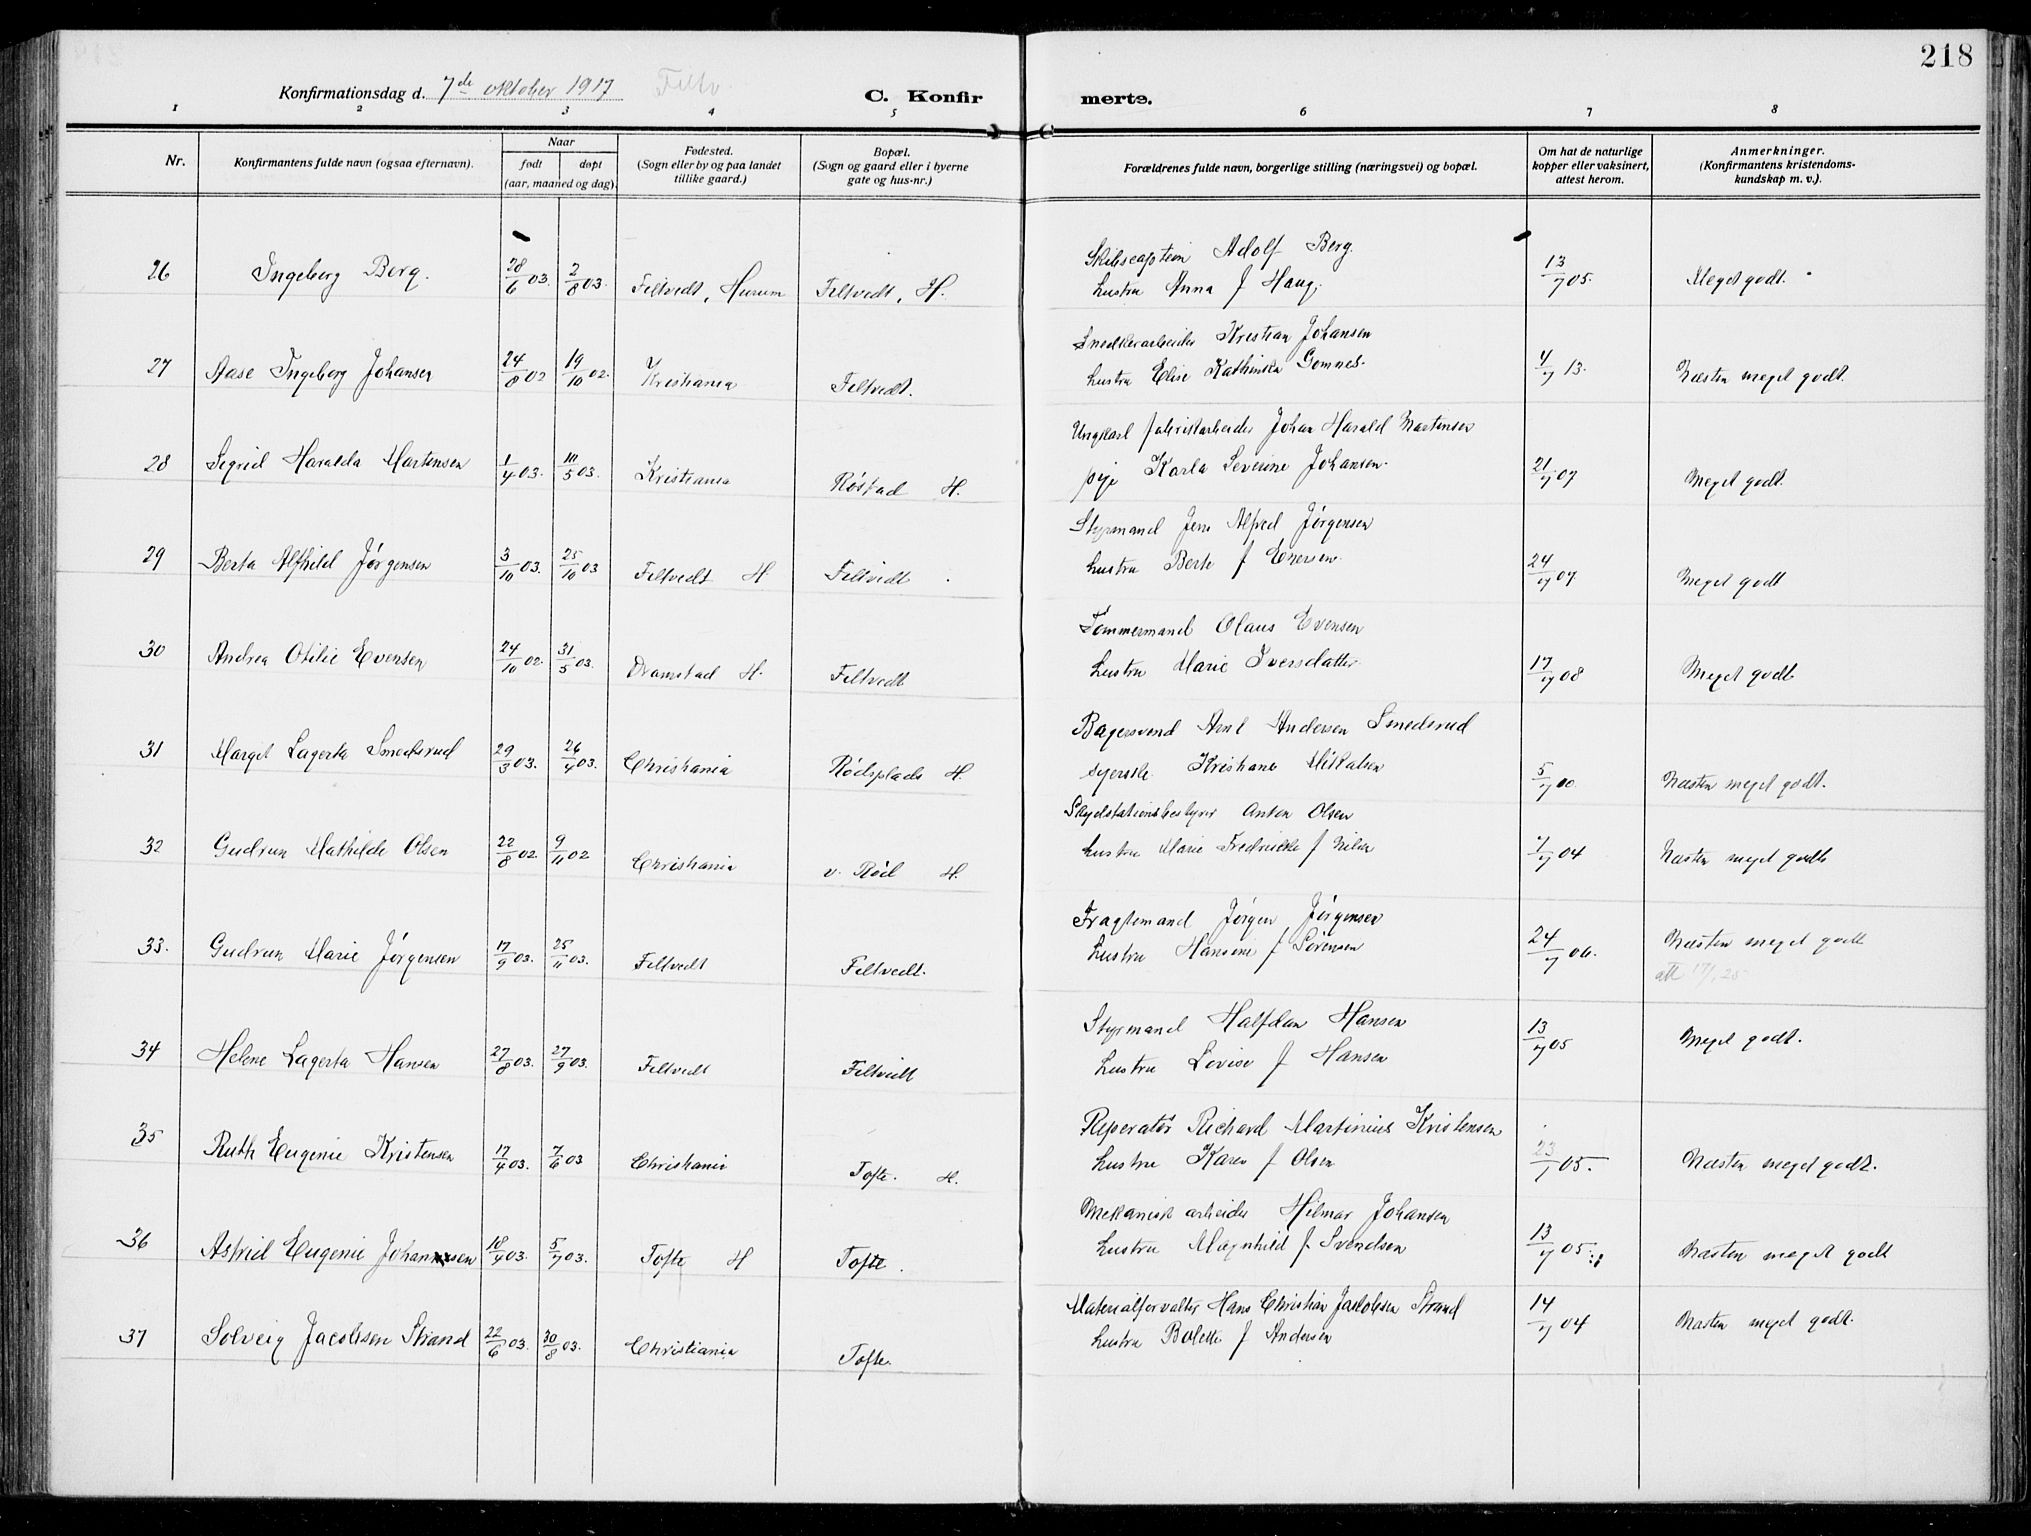 218
Konfirmationsdag d. 7de oktober 1917 Filtv.
C. Konfir merte.
1 2 3 4 5 6 7 8
Nr.
Konfirmantens fulde navn (ogsaa efternavn).
Naar
født døpt
(aar, maaned og dag).
Fødested.
(Sogn eller by og paa landet
tillike gaard.)
Bopæl.
(Sogn og gaard eller i byerne
gate og hus-nr.)
Forældrenes fulde navn, borgerlige stilling (næringsvei) og bopæl.
Om hat de naturlige
kopper eller vaksinert,
attest herom.
Anmerkninger.
(Konfirmantens kristendoms-
kundskap m. v.).
26 Ingeborg Berg. 28/6 03. 2/8 03. Filtvedt, Hurum Filtvedt, H.
Skibscaptein Adolf Berg.
hustru Anna f Haug. 13/7 05. Meget godt.
27 Aase Ingeborg Johansen 24/8 02 19/10 02. Kristiania Filtvedt.
Snedkerarbeider Kristian Johansen
hustru Elise Kathinka Gomnes. 4/7 13. Næsten meget godt.
28 Sigrid Haralda Martensen 1/4 03. 10/5 03. Kristiania Røstad H.
Ungkarl fabrikarbeider Johan Harald Martensen
pige Karla Severine Johansen. 21/7 07 Meget godt.
29 Berta Alfhild Jørgensen 3/10 03. 25/10 03 Filtvedt H Filtvedt
Styrmand Jens Alfred Jørgensen
hustru Berte f Enersen. 24/7 07. Meget godt
30 Andrea Otilie Evensen 24/10 02. 31/5 03. Dramstad H. Filtvedt
Tømmermand Olaus Evensen
hustru Marie Iversdatter. 17/7 08 Meget godt
31 Marget Lagerta Smedsrud 29/3 03. 26/4 03. Christiania Rødsplads H.
Bagersvend Axel Andersen Smedsrud
syerske Kristiane Mikalsen 5/7 00. Næsten meget godt.
32 Gudrun Mathilde Olsen 22/8 02 9/11 02 Christiania v. Rød H.
Skydsstationsbestyrer Anton Olsen
hustru Marie Fredrikke f Nilsen 7/7 04 Næsten meget godt
33. Gudrun Marie Jørgensen 17/9 03. 25/11 03. Filtvedt Filtvedt.
Fragtemand Jørgen Jørgensen
hustru Hansine f Sørensen 24/7 06. Næsten meget godt
att 17/1 25
34 Helene Lagerta Hansen 27/8 03. 27/9 03. Filtvedt Filtvedt
Styrmand Halfdan Hansen
hustru Lovise f Hansen 13/7 05 Meget godt.
35 Ruth Eugenie Kristensen 17/4 03. 7/6 03 Christiania Tofte. H.
Reperatør Richard Martinius Kristensen
hustru Karen f Olsen 23/7 05. Næsten meget godt.
36 Astrid Eugenie Johansen 18/4 03. 5/7 03. Tofte H Tofte.
Mekanisk arbeider Hilmar Johansen
hustru Magnhild f Svendsen 13/7 05. Næsten meget godt
37 Solveig Jacobsen Strand 22/6 03. 30/8 03. Christiania Tofte.
Materialforvalter Hans Christian Jacobsen Strand
hustru Bolette f Andersen 14/7 04 Næsten meget godt.